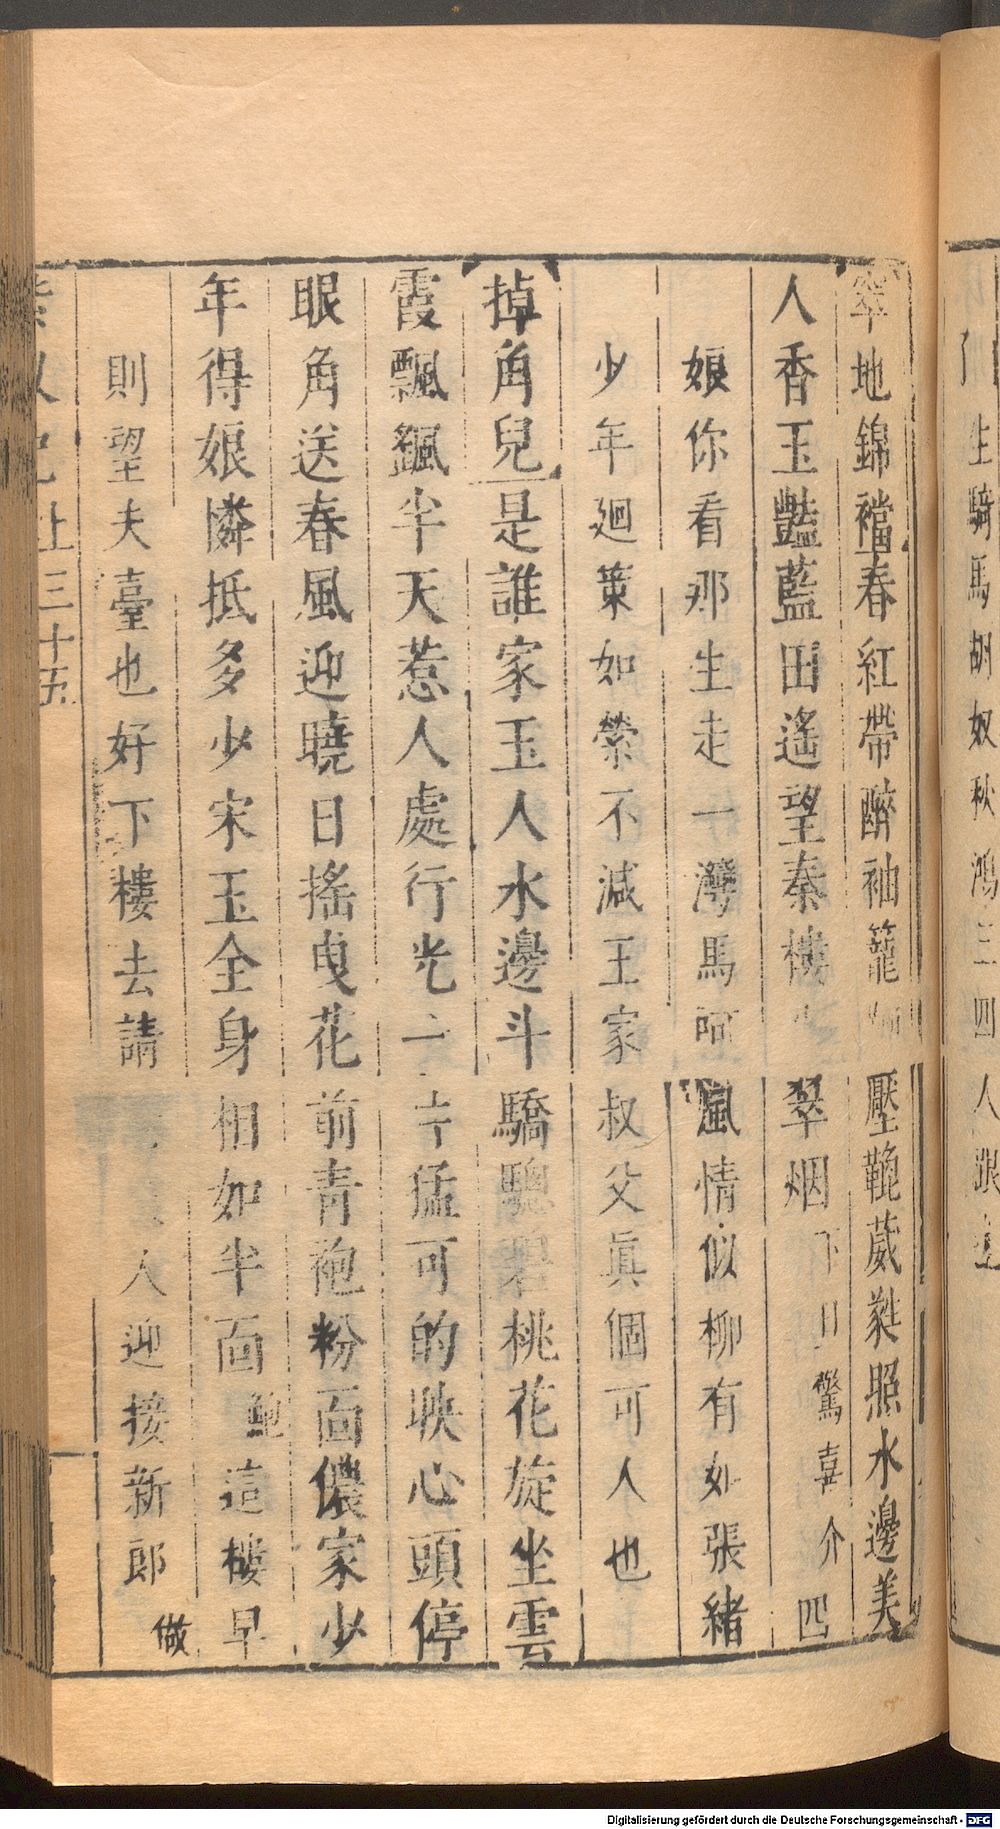 了 生騎馬胡奴秋鴻三四人跟
地錦襠春紅帶醉袖籠 壓鞓葳蕤照水邊美
人香玉豔藍田遙望秦樓 翠烟 驚喜介 四
娘你看那生走一灣馬 風情似柳有如張緒
少年廻策如縈不減王家叔父眞個可人也
掉角兒是誰家玉人水邊斗驕驄 桃花旋坐雲
霞飄颻半天惹人處行光一 猛可的映心頭停
眼角送春風迎曉日搖曳花前青袍粉面儂家少
年得娘憐抵多少宋玉全身相如半面 鮑 這樓早
則望夫臺也好下樓去請 人迎接新郎 做
上三十五
Digitalisierung gefördert durch die Deutsche Forschungsgemeinschaft - DFG